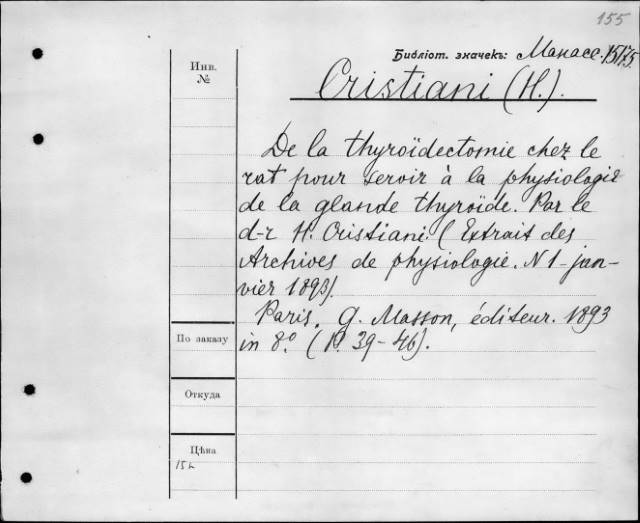 155
Библіот. значекъ: Манасс. 15175
Инв.
№
Cristiani (H.).
De la thyroïdectomie chez le
rat pour servir à la physiologie
de la glande thyroïde. Par le
d-r H. Cristiani. (Extrait des
Archives de physiologie. N 1 - jan-
vier 1893).
Paris, G. Masson, éditeur. 1893
in 8.º (P. 39-46).
По заказу
Откуда
Цѣна